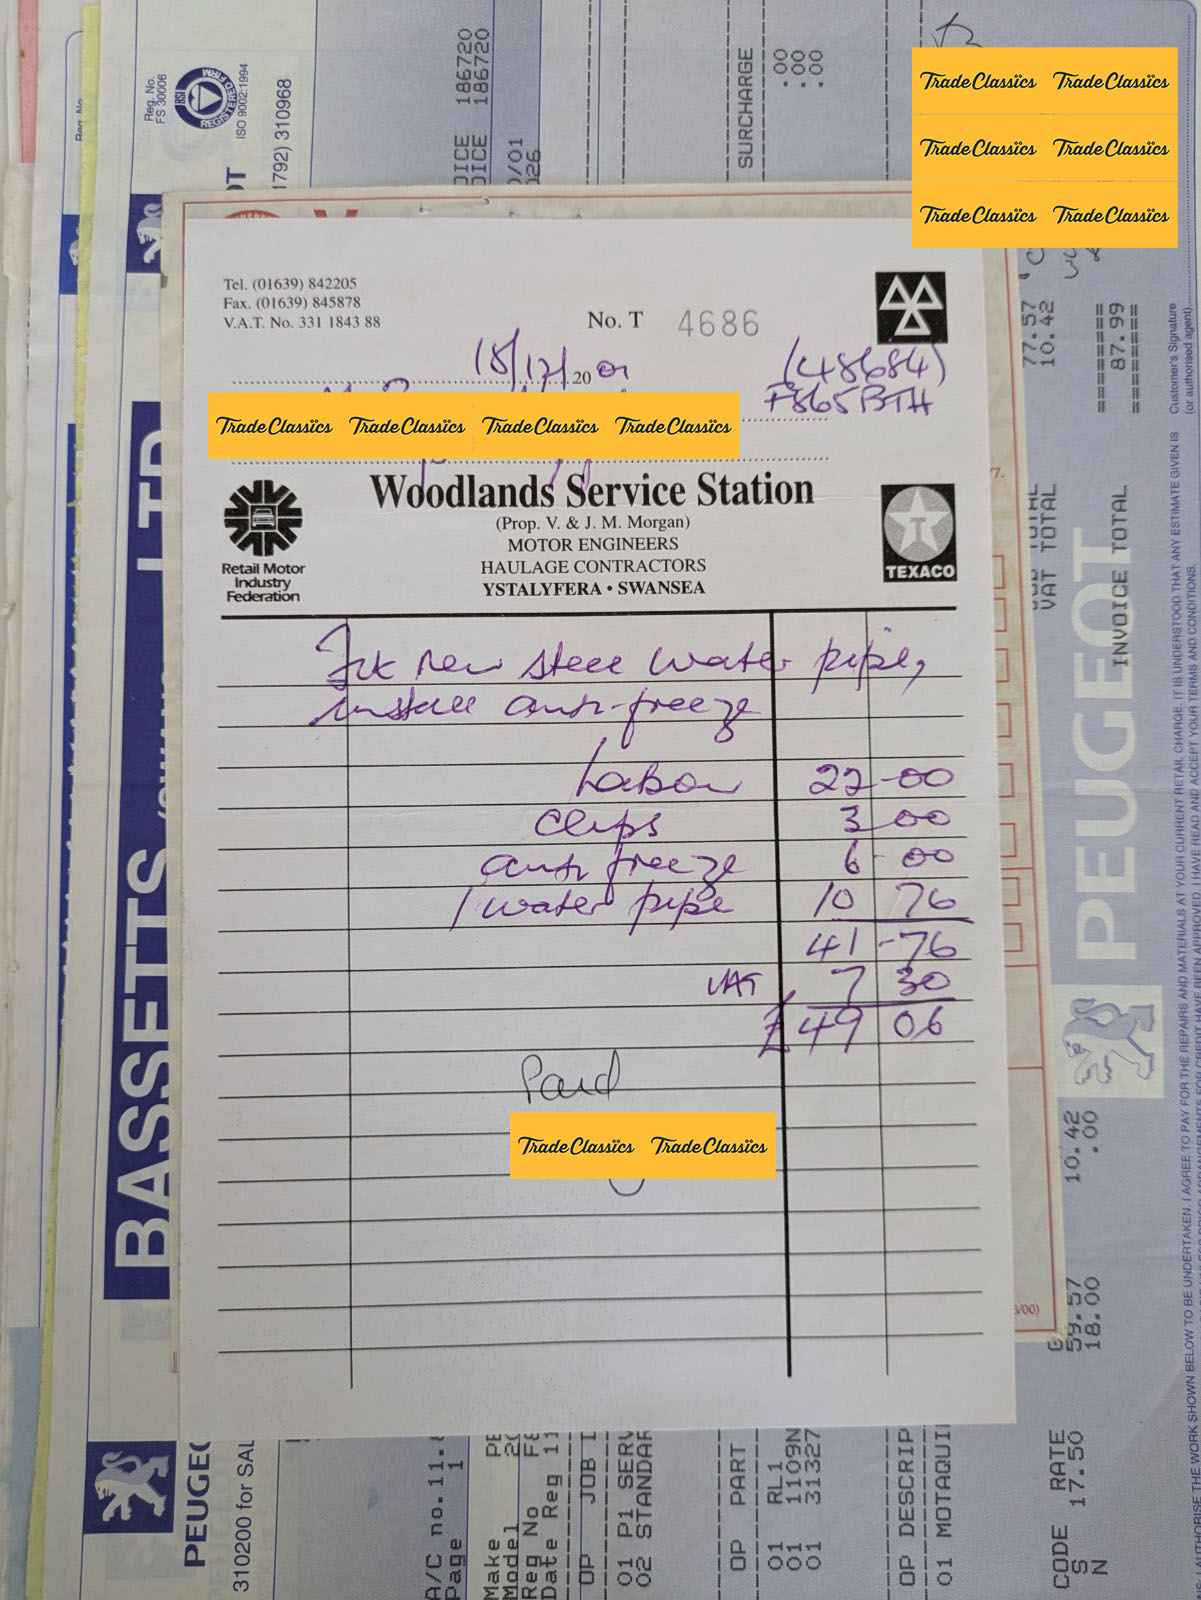 TradeClassics TradeClassics
TradeClassics TradeClassics
TradeClassics TradeClassics
Tel. (01639) 842205
Fax. (01639) 845878
V.A.T. No. 331 1843 88
No. T 4686
18/12/20 01
(48684)
F865BTH
TradeClassics TradeClassics TradeClassics TradeClassics
Woodlands Service Station
(Prop. V. & J. M. Morgan)
MOTOR ENGINEERS
HAULAGE CONTRACTORS
YSTALYFERA • SWANSEA
Retail Motor
Industry
Federation
TEXACO
new steel water pipe,
install anti-freeze
Labour 22-00
clips 3 00
anti freeze 6-00
1 water pipe 10 76
41-76
VAT 7 30
£ 49 06
Paid
TradeClassics TradeClassics
Reg. No.
FS 30006
BSI REGISTERED FIRM
ISO 9002:1994
1792) 310968
BASSETTS
LTD
PEUGEOT
310200 for SAL
OICE 186720
OICE 186720
0/01
026
SURCHARGE
.00
.00
.00
A/C no.11.
Page 1
Make PE
Model 20
Reg No F8
Date Reg 11
OP JOB
01 P1 SERV
02 STANDAR
OP PART
01 RL1
01 1109N
01 31327
OP DESCRIP
01 MOTAQUI
CODE RATE
S 17.50
N
59.57
18.00
10.42
.00
VAT TOTAL
77.57
10.42
INVOICE TOTAL
87.99
PEUGEOT
Customer's Signature
(or authorised agent)
I AUTHORISE THE WORK SHOWN BELOW TO BE UNDERTAKEN. I AGREE TO PAY FOR THE REPAIRS AND MATERIALS AT YOUR CURRENT RETAIL CHARGE. IT IS UNDERSTOOD THAT ANY ESTIMATE GIVEN IS
I HAVE READ AND ACCEPT YOUR TERMS AND CONDITIONS.